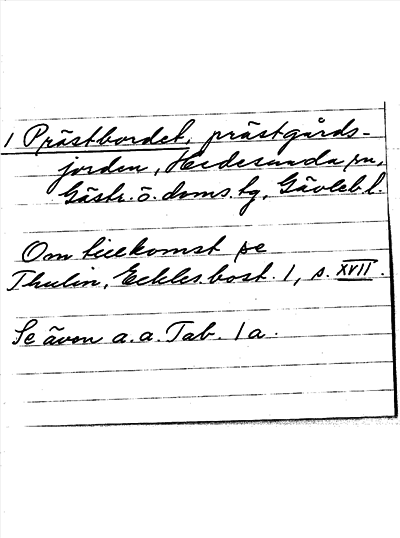 1 Prästbordet, prästgårds-
jorden, Hedesunda sn,
Gästr. ö. doms. tg, Gävlebl.
Om tillkomst se
Thulin, Eckles. bost. 1, s. XVII.
Se även a.a. Tab. 1a.